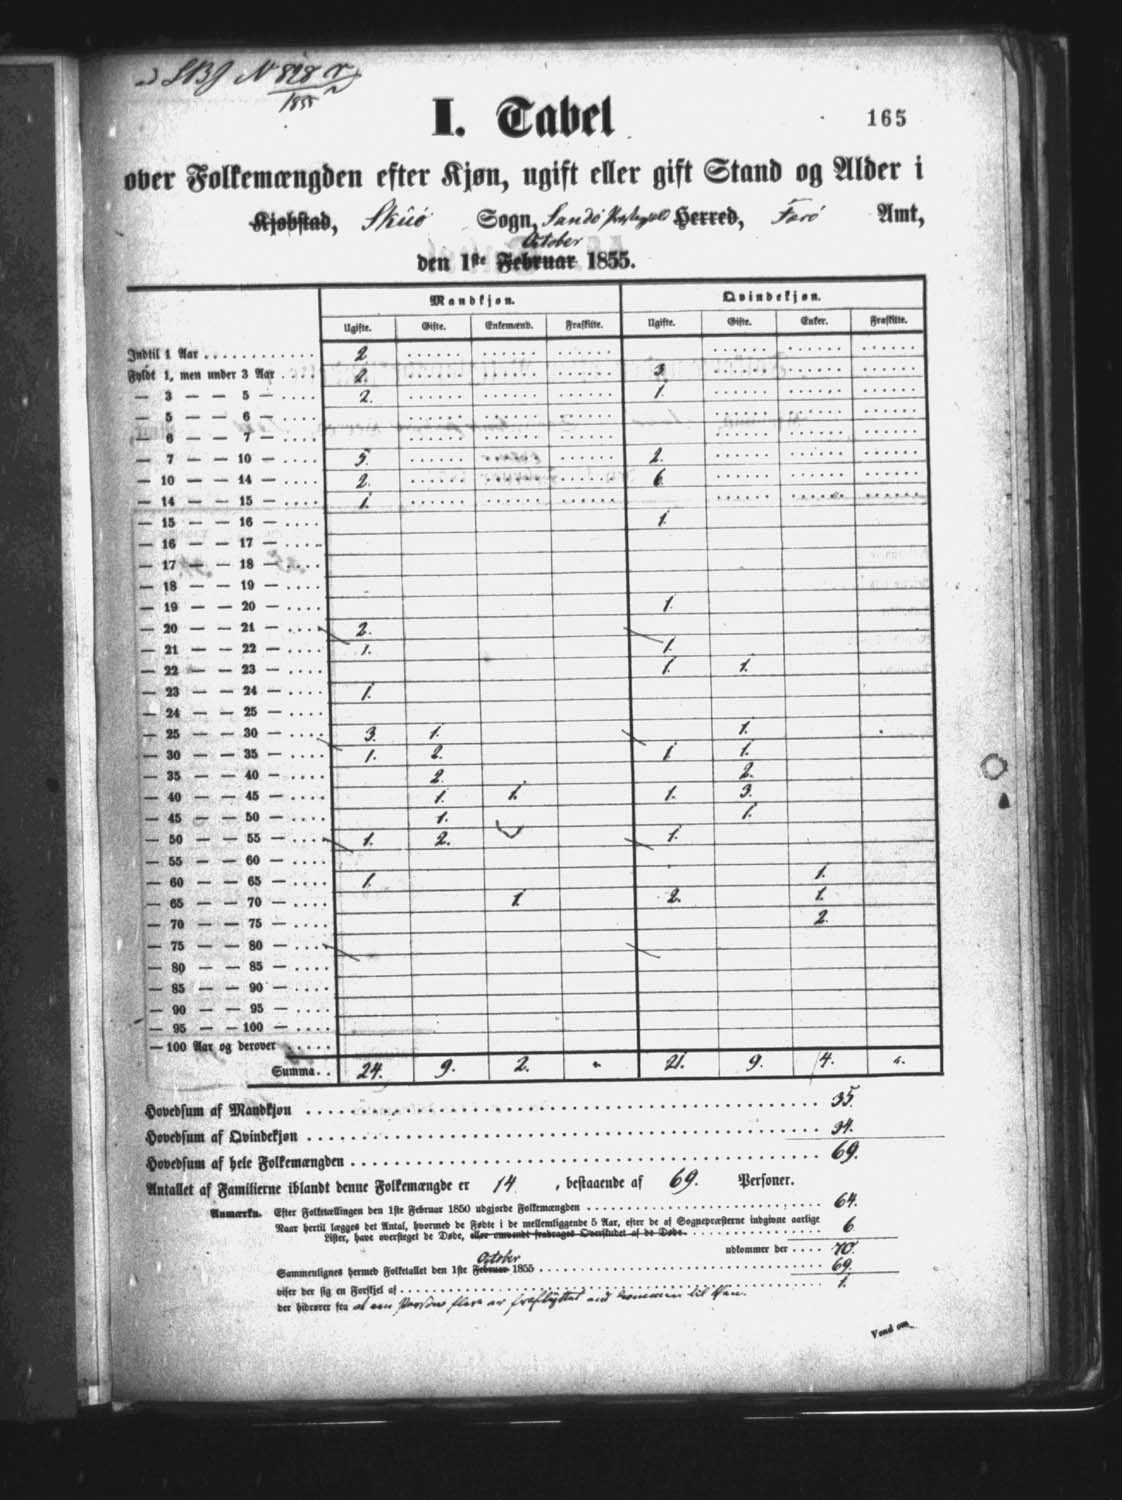 LBJ N 828
1855
I. Tabel
165
over Folkemængden efter Kjøn, ugift eller gift Stand og Alder i
Kjøbstad, Skuö Sogn, Sandö Præstegjeld Herred, Farö Amt,
October
den 1ste Februar 1855.
Mandkjøn. Qvindekjøn.
Ugifte. Gifte. Enkemænd. Fraskilte. Ugifte. Gifte. Enker. Fraskilte.
Indtil 1 Aar 2
Fyldt 1, men under 3 Aar 2. 3.
— 3 — — 5 — 2. 1.
— 5 — — 6 —
— 6 — — 7 —
— 7 — — 10 — 5. 2.
— 10 — — 14 — 2. 6.
— 14 — — 15 — 1.
— 15 — — 16 — 1.
— 16 — — 17 —
— 17 — — 18 —
— 18 — — 19 —
— 19 — — 20 — 1.
— 20 — — 21 — 2.
— 21 — — 22 — 1. 1.
— 22 — — 23 — 1. 1.
— 23 — — 24 — 1.
— 24 — — 25 —
— 25 — — 30 — 3. 1. 1.
— 30 — — 35 — 1. 2. 1 1.
— 35 — — 40 — 2. 2.
— 40 — — 45 — 1. 1. 1. 3.
— 45 — — 50 — 1. 1.
— 50 — — 55 — 1. 2. 1.
— 55 — — 60 —
— 60 — — 65 — 1. 1.
— 65 — — 70 — 1. 2. 1.
— 70 — — 75 — 2.
— 75 — — 80 —
— 80 — — 85 —
— 85 — — 90 —
— 90 — — 95 —
— 95 — — 100 —
— 100 Aar og derover
Summa. 24. 9. 2. " 21. 9. 4. "
Hovedsum af Mandkjøn 35.
Hovedsum af Qvindekjøn 34.
Hovedsum af hele Folkemængden 69.
Antallet af Familierne iblandt denne Folkemængde er 14, bestaaende af 69. Personer.
Anmærkn. Efter Folketællingen den 1ste Februar 1850 udgjorde Folkemængden 64.
Naar hertil lægges det Antal, hvormed de Fødte i de mellemliggende 5 Aar, efter de af Sognepræsterne indgivne aarlige
Lister, have oversteget de Døde, eller omvendt fradrages Overskudet af de Døde. 6
udkommer der 70.
October
Sammenlignes hermed Folketallet den 1ste Februar 1855 69.
viser der sig en Forskjel af 1.
der hidrører fra at een Person flere er fraflyttet end kommen til Øen.
Vend om